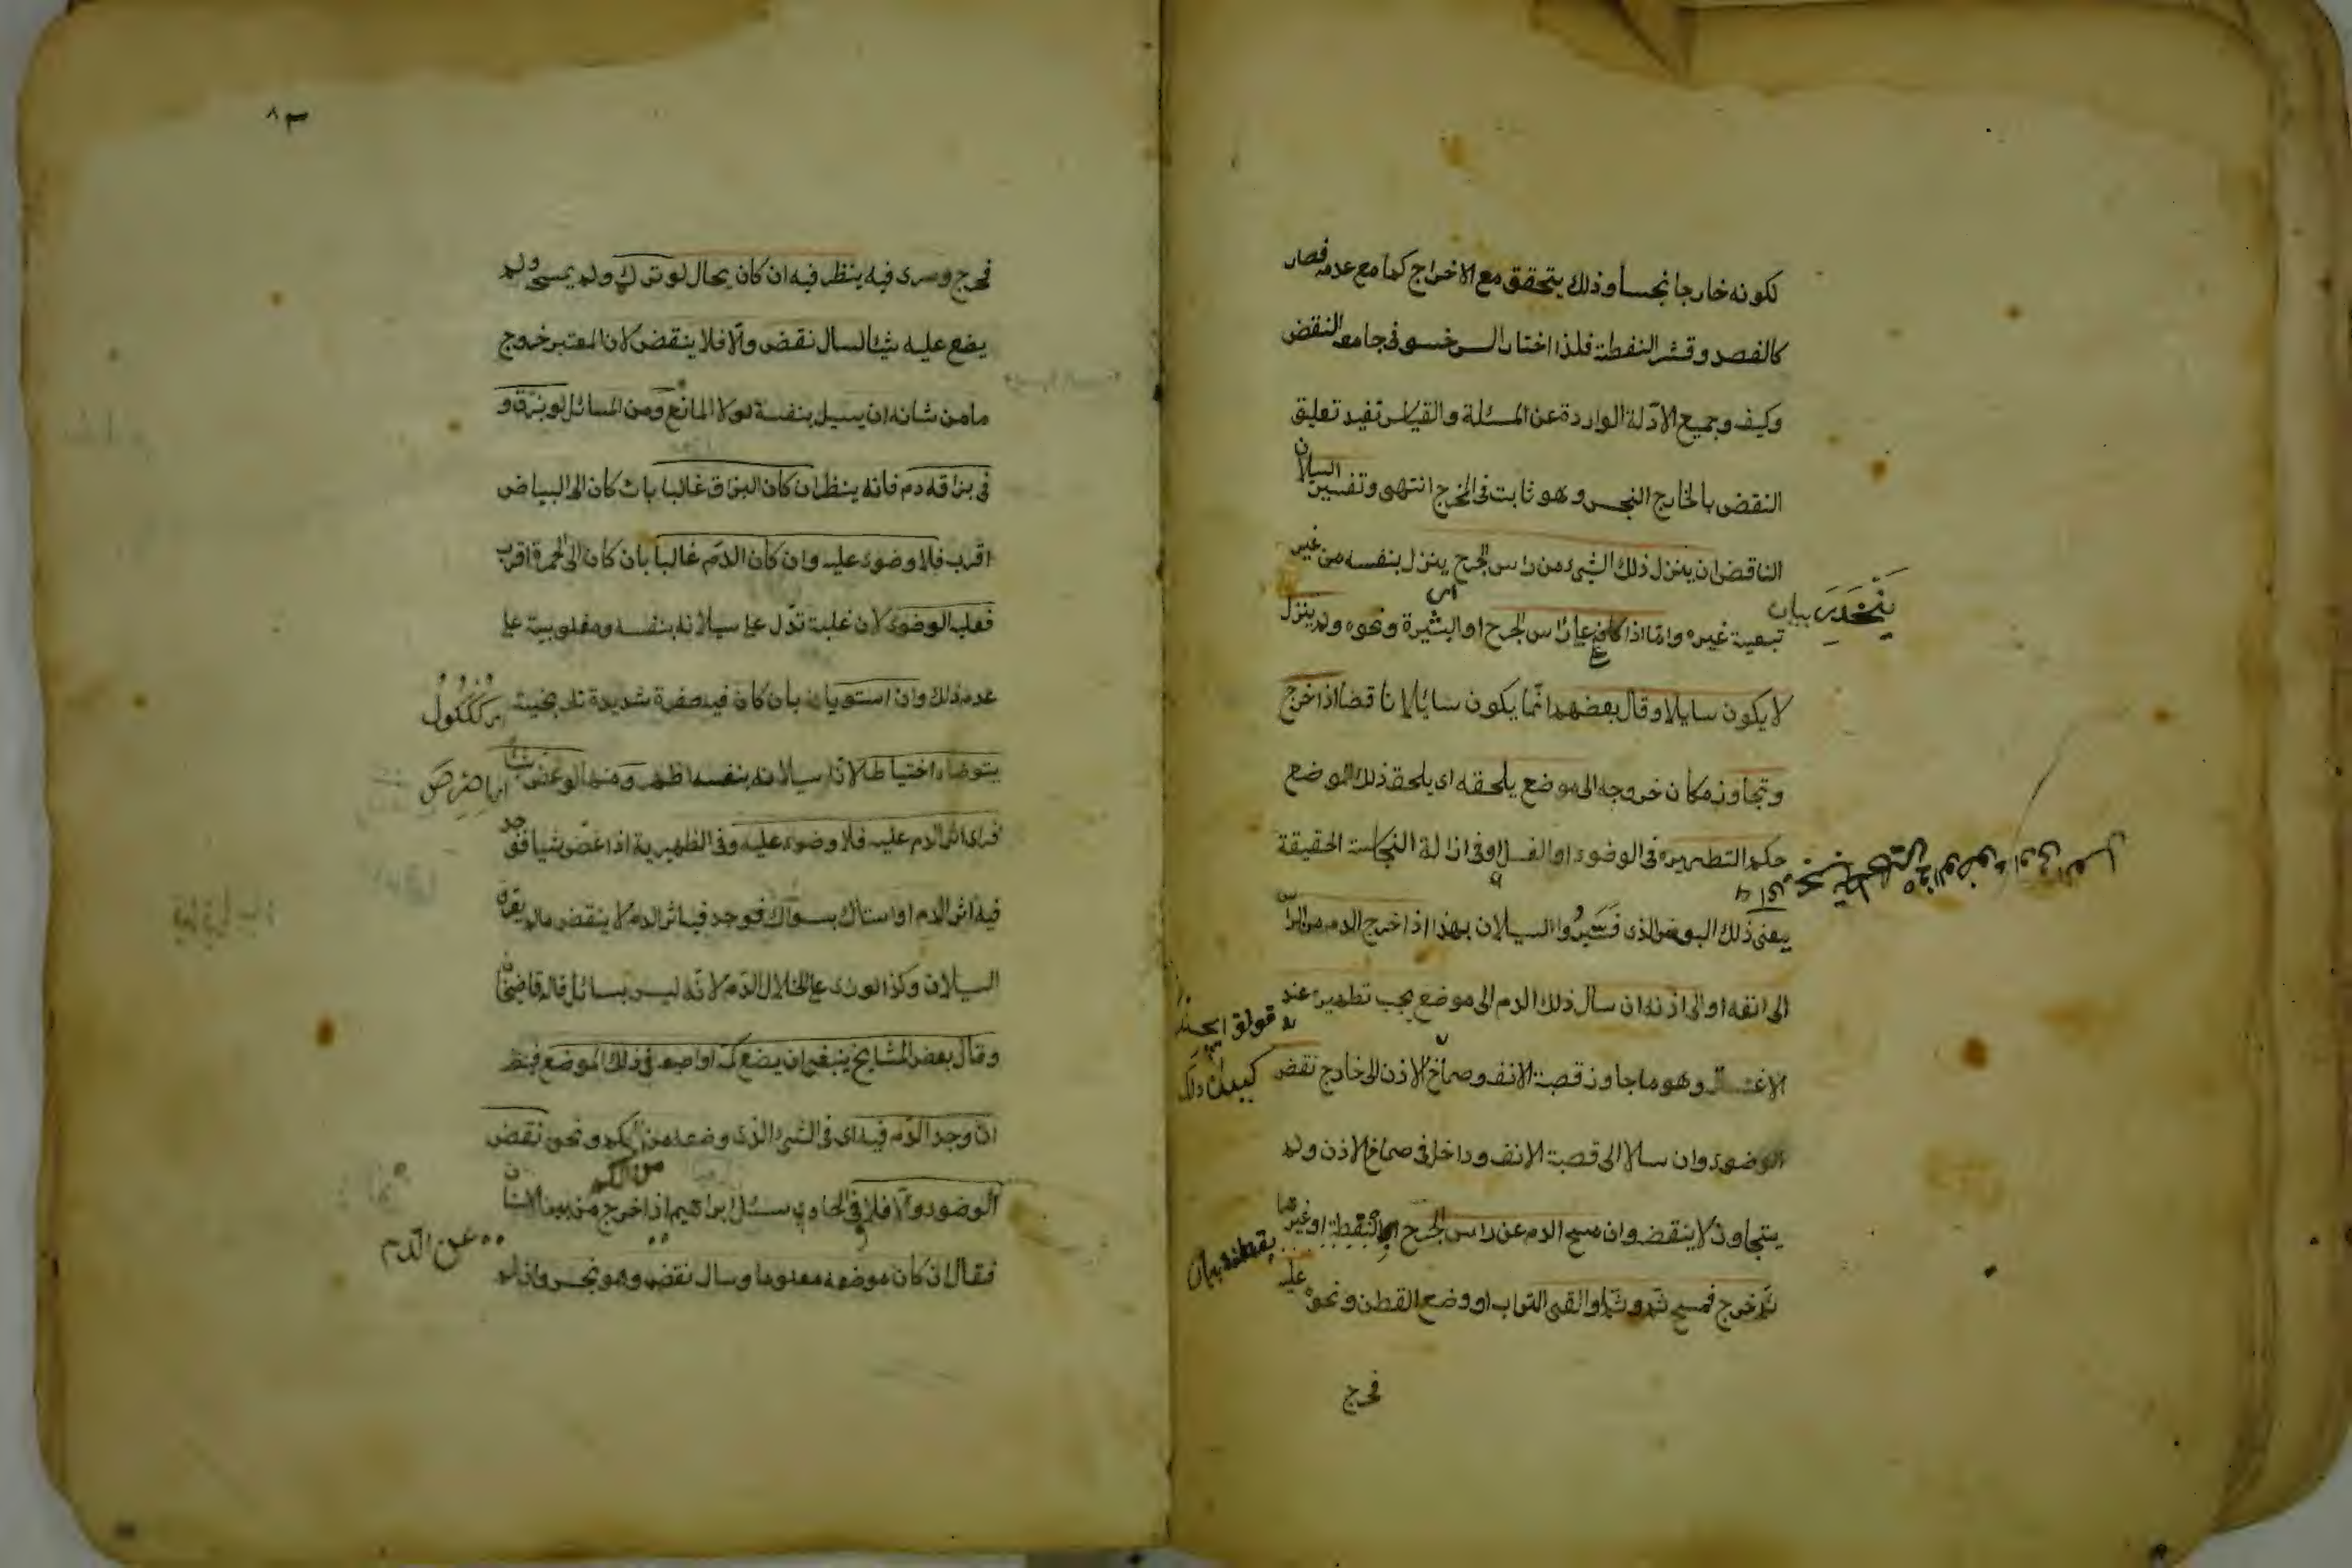 لكونه خارجا نجسا وذلك يتحقق مع الاخراج كما مع عدمه فصار
كالفصد وقشر النفطة فلذا اختار السرخسي في جامعه النقض
وكيف وجميع الادلة الواردة عن المسئلة والقياس تفيد تعليق
النقض بالخارج النجس وهو ثابت في المخرج انتهى وتفسير السيلان
الناقض ان ينزل ذلك الشيء من راس الجرح ينزل بنفسه من غير
تبعية غيره واما اذا كان على راس الجرح او البثيرة ونحوه ولم ينزل
ينحدر بيان
لا يكون سايلا وقال بعضهم انما يكون سائلا ناقضا اذا خرج
وتجاوز مكان خروجه الى موضع يلحقه اى يلحق ذلك الموضع
حكم التطهير في الوضوء او الغسل او في ازالة النجاست الحقيقة
يعنى ذلك البعض الذى فسروا السيلان بهذا اذا خرج الدم من الراس
الى انفه او الى اذنه ان سال ذلك الدم الى موضع يجب تطهيره عند
الاغتسال وهو ما جاوز قصبة الانف وصماخ الاذن الى خارج نقض
الوضوء وان سال الى قصبة الانف وداخل في صماخ الاذن ولم
يتجاوز لا ينقض وان مسح الدم عن راس الجرح بالقطنة او غيرها
بقطنه بيان
ثم خرج فمسح ثم وثم او القى التراب او وضع القطن ونحوه عليه
فخرج
٨٣
فخرج وسرى فيه ينظر فيه ان كان بحال لو ترك ولم يمسح ولم
يضع عليه شيئا لسال نقض والا فلا ينقض لان المعتبر خروج
ما من شانه ان يسيل بنفسه لولا المانع ومن المسائل لو بزق و
في بزاقه دم فانه ينظر ان كان البزاق غالبا بان كان الى البياض
اقرب فلا وضوء عليه وان كان الدم غالبا بان كان الى الحمرة اقرب
فعليه الوضوء لان غلبته تدل على سيلانه بنفسه ومغلوبيته على
عدم ذلك وان استويا بان كان فيه صفرة شديدة
يتوضأ احتياطا لان سيلانه بنفسه اظهر ومنها لو عض شيئا
فرأى اثر الدم عليه فلا وضوء عليه وفي الظهيرية اذا عض شيا فوجد
فيه اثر الدم او استاك بسواك فوجد فيه اثر الدم لا ينقض ما لم يعرف
السيلان وكذا لو رأى على الخلال الدم لانه ليس بسائل قاله قاضيخان
وقال بعض المشايخ ينبغى ان يضع كمه او اصبعه في ذلك الموضع فينظر
ان وجد الدم فيه اى في الشئ الذى وضعه من الكم ونحوه نقض
من الكم
الوضوء والا فلا وفي الحاوي سئل ابراهيم اذا خرج من بين الاسنان
عن الدم
فقال ان كان موضعه معلوما وسال نقض وهو نجس وان لم